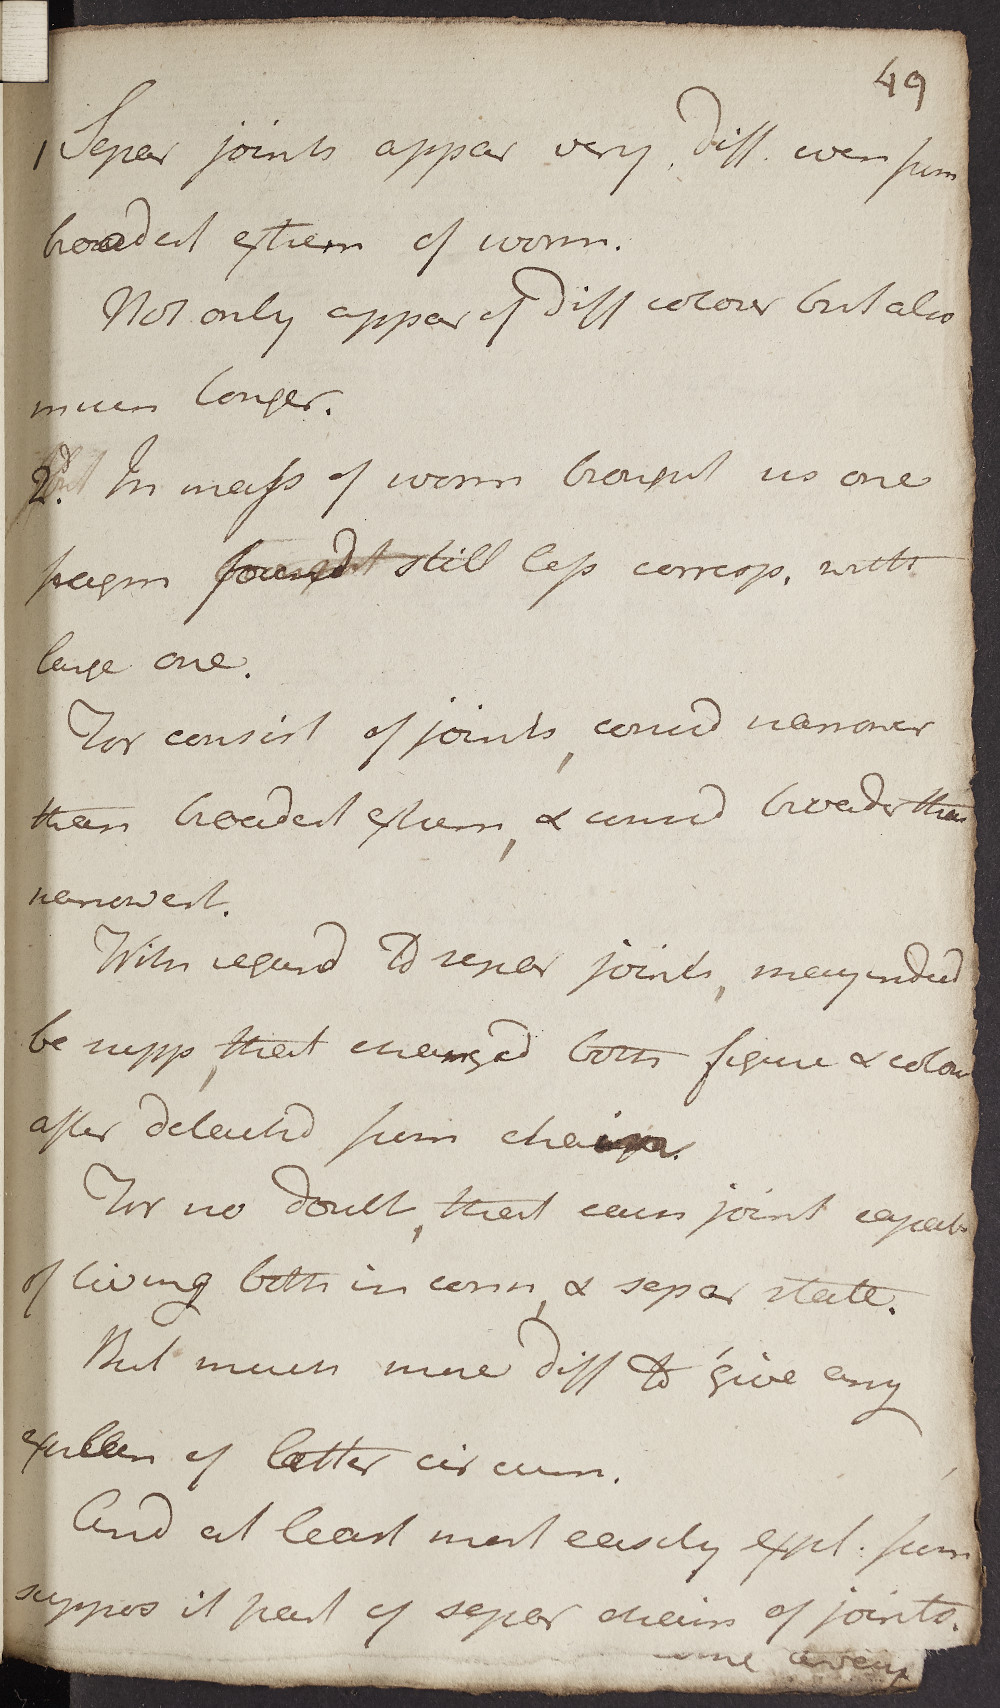 49
1 Separ joints appear very diff. even from
broadest extrem of worm.
Not only appear of diff colour but also
much longer.
2d. In mass of worm brought us one
fragm found still less corresp. with
large one.
For consist of joints, consid narrower
than broadest extrem, & consid broader than
narrowest.
With regard to separ joints, may indeed
be supp, that changed both figure & colour
after detach'd from chain.
For no doubt, that each joint capab
of living both in conn, & separ state.
But much more diff to give any
of latter circum.
And at least most easily expl. from
suppos it part of separ chain of joints.
came away